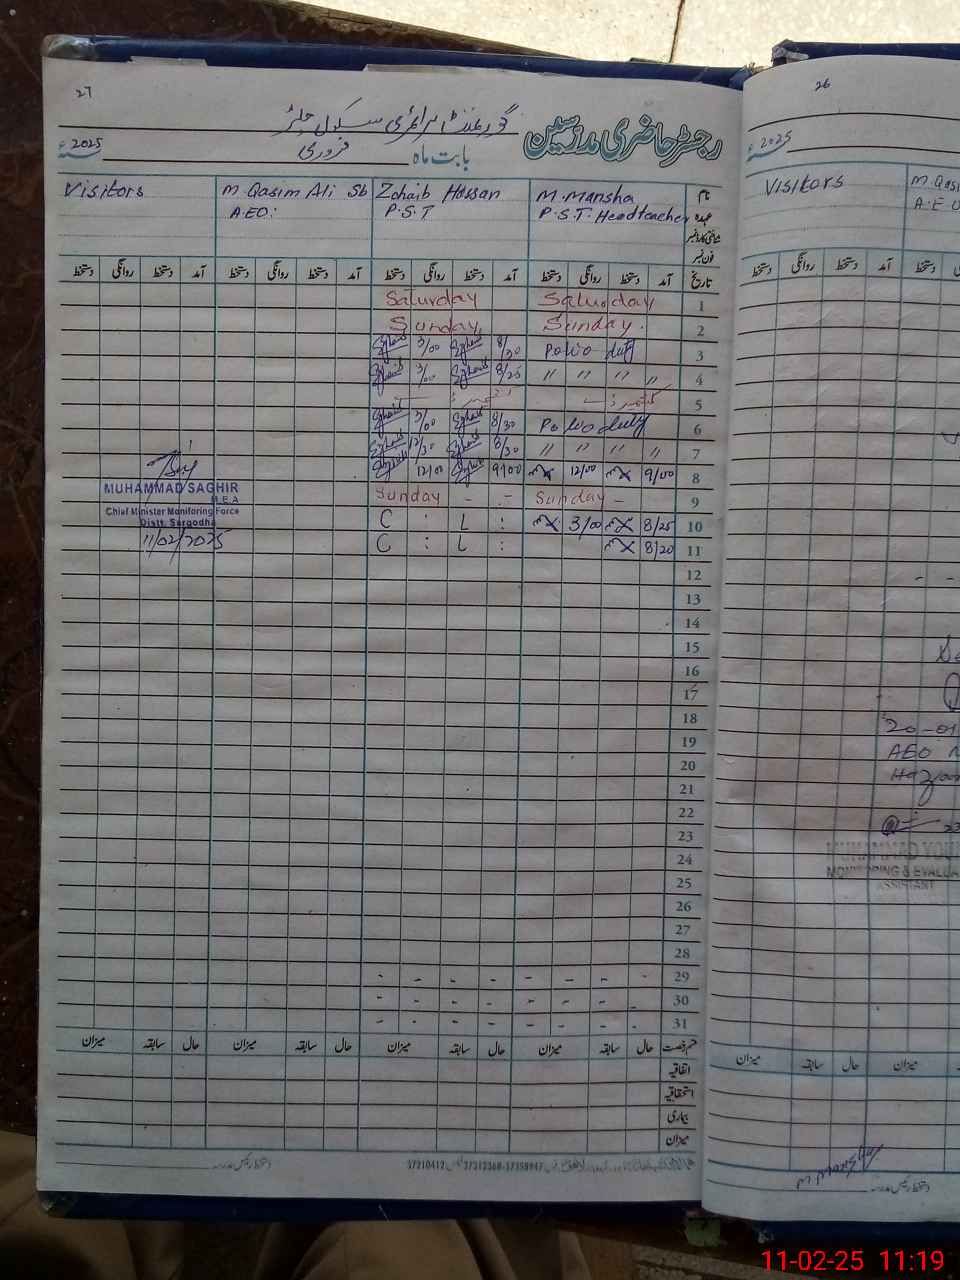 27
گورنمنٹ پرائمری سکول
رجسٹر حاضری مدرسین
2025ء
بابت ماہ فروری
نام
عہدہ
فون نمبر
M. Mansha
P.S.T. Headteacher
Zohaib Hassan
P.S.T
M. Qasim Ali Sb
A.E.O:
Visitors
تاریخ آمد دستخط روانگی دستخط آمد دستخط روانگی دستخط آمد دستخط روانگی دستخط آمد دستخط روانگی دستخط
Saturday Saturday 1
Sunday Sunday. 2
3/00 8/30 Polio duty 3
3/00 8/25 〃 〃 〃 〃 4
5
3/00 8/30 Polio duty 6
12/30 8/30 〃 〃 〃 〃 7
12/00 9/00 12/00 9/00 8
Sunday - - Sunday - 9
C : L : 3/00 8/25 10
C : L : 8/20 11
12
13
14
15
16
17
18
19
20
21
22
23
24
25
26
27
28
- - - - - - - - 29
- - - - - - - - 30
- - - - - - - 31
MUHAMMAD SAGHIR
M.E.A
Chief Minister Monitoring Force
Distt. Sargodha
11/02/2025
قسم رخصت حال سابقہ میزان حال سابقہ میزان حال سابقہ میزان حال سابقہ میزان
اتفاقیہ
استحقاقیہ
بیماری
میزان
دستخط رئیس مدرسہ
26
2025ء
Visitors
M. Qasi
A.E.O
آمد دستخط روانگی دستخط
20-01
AEO
MUHAMMAD YOU
MONITORING & EVALUA
ASSISTANT
میزان حال سابقہ میزان
دستخط رئیس مدرسہ
11-02-25 11:19